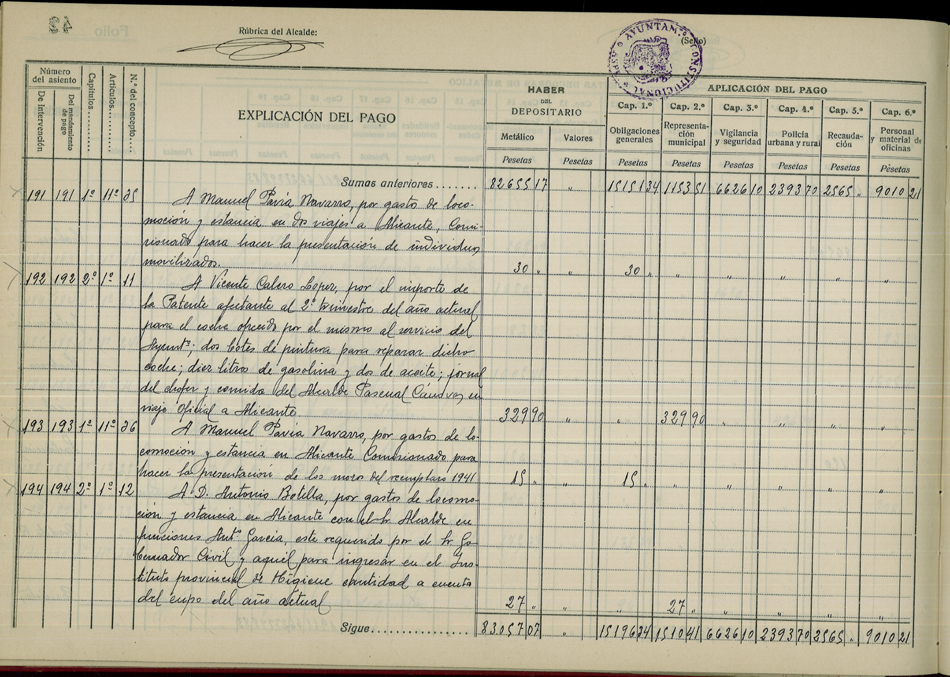 Rúbrica del Alcalde:
(Sello)
AYUNTAM CONSTITUCIONAL
Folio 42
Número del asiento
De Intervención
Del mandamiento de pago
Capítulos
Artículos
N.º del concepto
EXPLICACIÓN DEL PAGO
HABER DEL DEPOSITARIO
Metálico
Pesetas
Valores
Pesetas
APLICACIÓN DEL PAGO
Cap. 1.º Obligaciones generales Pesetas
Cap. 2.º Representación municipal Pesetas
Cap. 3.º Vigilancia y seguridad Pesetas
Cap. 4.º Policía urbana y rural Pesetas
Cap. 5.º Recaudación Pesetas
Cap. 6.º Personal y material de oficinas Pesetas
Sumas anteriores 82655 17 " 15151 34 1153 51 6626 10 2393 70 2565 " 9010 21
191 191 1º 11º 35 A Manuel Pavía Navarro, por gasto de loco-
moción y estancia en dos viajes a Alicante, Comi-
sionado para hacer la presentación de individuos
movilizados. 30 " " 30 " " " " " "
192 192 2º 1º 11 A Vicente Calero Lopez, por el importe de
la Patente afectante al 2º trimestre del año actual
para el coche ofrecido por el mismo al servicio del
Ayuntº; dos botes de pintura para reparar dicho
coche; diez litros de gasolina y dos de aceite; jornal
del chofer y comida del Alcalde Pascual Cánovas, en
viaje oficial a Alicante. 329 90 " " 329 90 " " " "
193 193 1º 11º 36 A Manuel Pavía Navarro, por gastos de lo-
comoción y estancia en Alicante Comisionado para
hacer la presentación de los mozos del reemplazo 1941 15 " " 15 " " " " " "
194 194 2º 1º 12 A D. Antonio Botella, por gastos de locomo-
cion y estancia en Alicante con el Sr Alcalde en
funciones Antº Garcia, este requerido por el Sr Go-
bernador Civil y aquél para ingresar en el Ins-
tituto provincial de Higiene cantidad a cuenta
del cupo del año actual 27 " " " 27 " " " " "
Sigue 83057 07 " 15196 34 1510 41 6626 10 2393 70 2565 " 9010 21